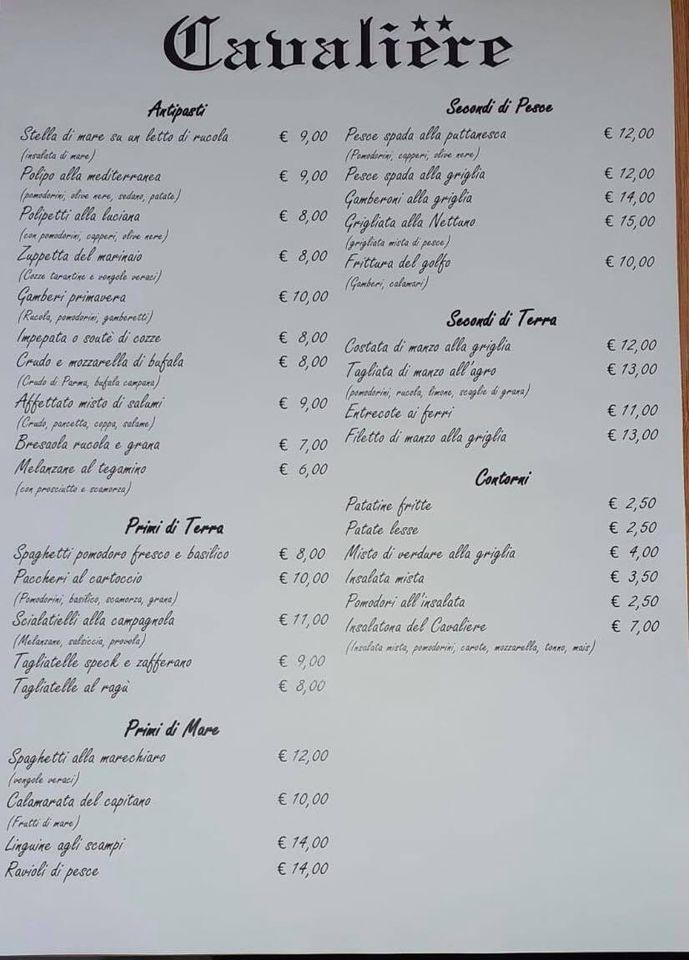 Cavaliere
Antipasti
Stella di mare su un letto di rucola € 9,00
(insalata di mare)
Polipo alla mediterranea € 9,00
(pomodorini, olive nere, sedano, patate)
Polipetti alla luciana € 8,00
(con pomodorini, capperi, olive nere)
Zuppetta del marinaio € 8,00
(Cozze tarantine e vongole veraci)
Gamberi primavera € 10,00
(Rucola, pomodorini, gamberetti)
Impepata o soutè di cozze € 8,00
Crudo e mozzarella di bufala € 8,00
(Crudo di Parma, bufala campana)
Affettato misto di salumi € 9,00
(Crudo, pancetta, coppa, salame)
Bresaola rucola e grana € 7,00
Melanzane al tegamino € 6,00
(con prosciutto e scamorza)
Primi di Terra
Spaghetti pomodoro fresco e basilico € 8,00
Paccheri al cartoccio € 10,00
(Pomodorini, basilico, scamorza, grana)
Scialatielli alla campagnola € 11,00
(Melanzane, salsiccia, provola)
Tagliatelle speck e zafferano € 9,00
Tagliatelle al ragù € 8,00
Primi di Mare
Spaghetti alla marechiaro € 12,00
(vongole veraci)
Calamarata del capitano € 10,00
(Frutti di mare)
Linguine agli scampi € 14,00
Ravioli di pesce € 14,00
Secondi di Pesce
Pesce spada alla puttanesca € 12,00
(Pomodorini, capperi, olive nere)
Pesce spada alla griglia € 12,00
Gamberoni alla griglia € 14,00
Grigliata alla Nettuno € 15,00
(grigliata mista di pesce)
Frittura del golfo € 10,00
(Gamberi, calamari)
Secondi di Terra
Costata di manzo alla griglia € 12,00
Tagliata di manzo all'agro € 13,00
(pomodorini, rucola, limone, scaglie di grana)
Entrecote ai ferri € 11,00
Filetto di manzo alla griglia € 13,00
Contorni
Patatine fritte € 2,50
Patate lesse € 2,50
Misto di verdure alla griglia € 4,00
Insalata mista € 3,50
Pomodori all'insalata € 2,50
Insalatona del Cavaliere € 7,00
(Insalata mista, pomodorini, carote, mozzarella, tonno, mais)